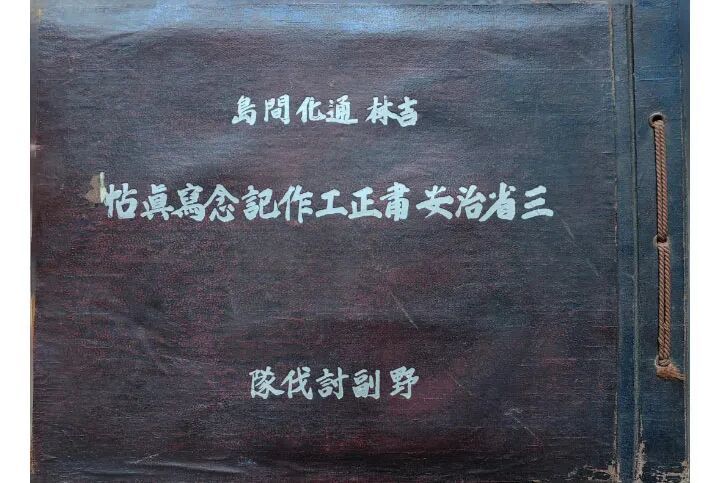 吉林通化間島
三省治安肅正工作記念寫眞帖
野副討伐隊